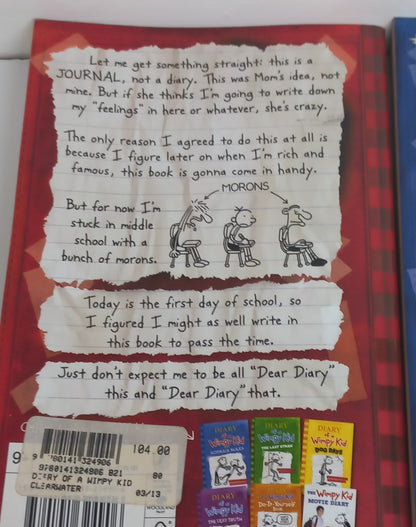 Let me get something straight: this is a
JOURNAL, not a diary. This was Mom's idea, not
mine. But if she thinks I'm going to write down
my "feelings" in here or whatever, she's crazy.
The only reason I agreed to do this at all is
because I figure later on when I'm rich and
famous, this book is gonna come in handy.
MORONS
But for now I'm
stuck in middle
school with a
bunch of morons.
Today is the first day of school, so
I figured I might as well write in
this book to pass the time.
Just don't expect me to be all "Dear Diary"
this and "Dear Diary" that.
104.00
9 780141 324906
9780141324906 B21 80
DIARY OF A WIMPY KID 80
CLEARWATER 03/13
DIARY
of a
Wimpy Kid
RODRICK RULES
DIARY
of a
Wimpy Kid
THE LAST STRAW
DIARY
of a
Wimpy Kid
DOG DAYS
DIARY
of a
Wimpy Kid
THE UGLY TRUTH
Wimpy Kid
Do-It-Yourself
THE
Wimpy Kid
MOVIE DIARY